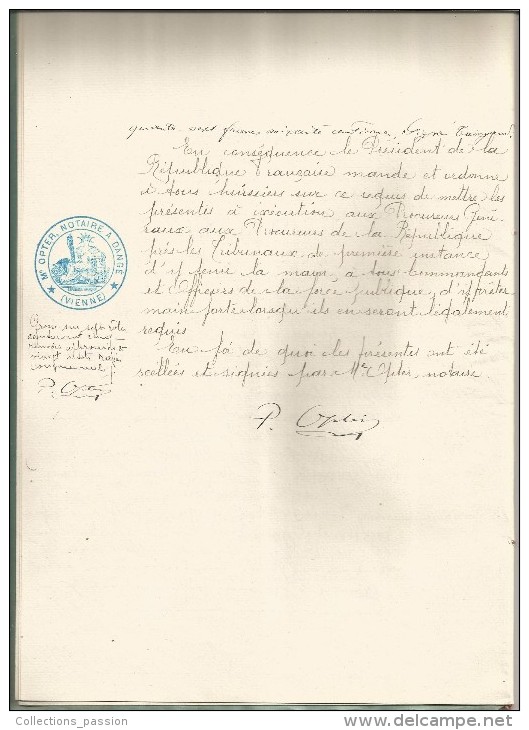 quarante francs soixante centimes, Signé
En conséquence le Président de la
République Française mande et ordonne
à tous huissiers sur ce requis de mettre les
présentes à exécution aux Procureurs Géné
raux aux Procureurs de la République
près les Tribunaux de première instance
d'y tenir la main, à tous Commandants
et Officiers de la force publique, d'y prêter
main forte lorsqu'ils en seront légalement
requis.
En foi de quoi les présentes ont été
scellées et signées par Me Opter, notaire.
P. Opter
Me OPTER, NOTAIRE A DANGÉ
(VIENNE)
vingt
mot nul
P. Opter
Collections_passion
www.delcampe.net